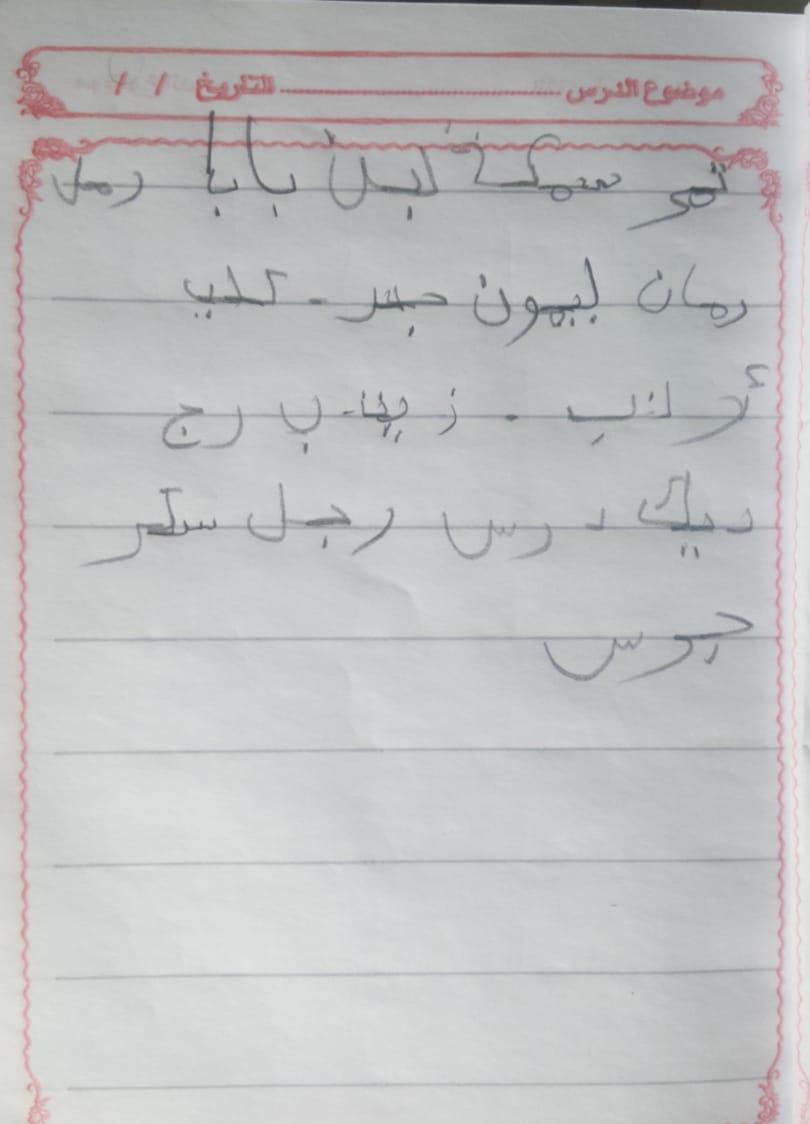 موضوع الدرس ........................ التاريخ / /
تمر سمكة لبن بابا رمل
رمان ليمون جسر - كلب
أرنب - زينب رج
ديك درس رجل سكر
جرس